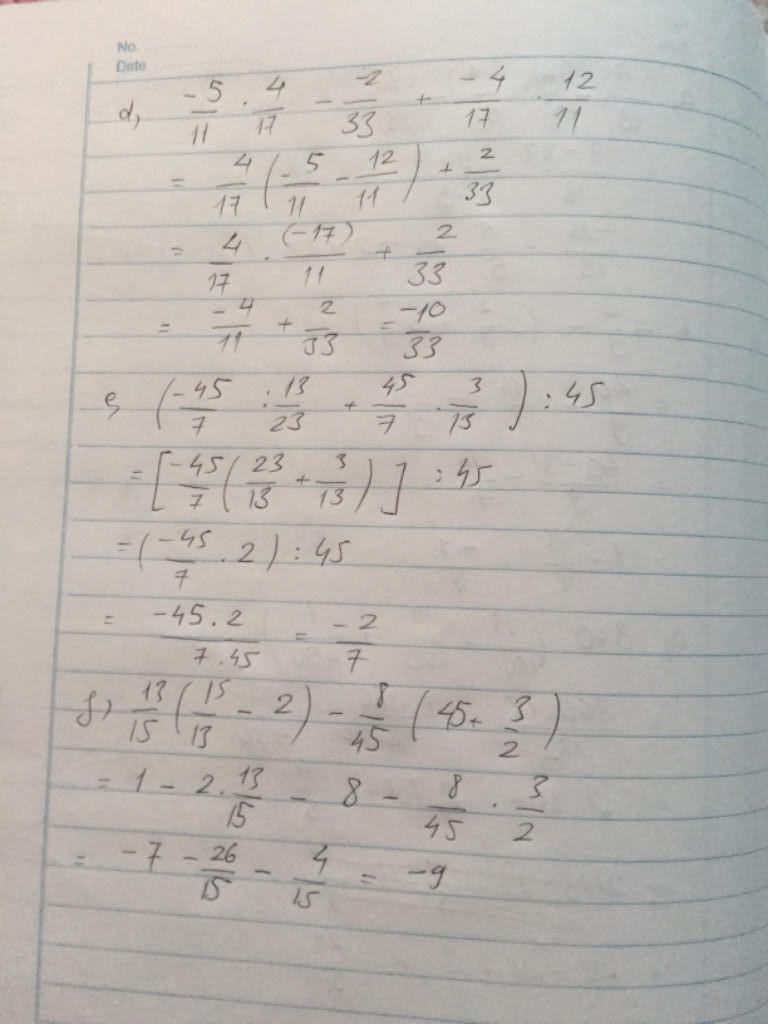 No.
Date
d, -5/11 . 4/17 - -2/33 + -4/17 . 12/11
= 4/17 (-5/11 - 12/11) + 2/33
= 4/17 . (-17)/11 + 2/33
= -4/11 + 2/33 = -10/33
e, (-45/7 : 13/23 + 45/7 . 3/13) : 45
= [-45/7 (23/13 + 3/13)] : 45
= (-45/7 . 2) : 45
= -45.2/7.45 = -2/7
f, 13/15 (15/13 - 2) - 8/45 (45 + 3/2)
= 1 - 2.13/15 - 8 - 8/45 . 3/2
= -7 - 26/15 - 4/15 = -9